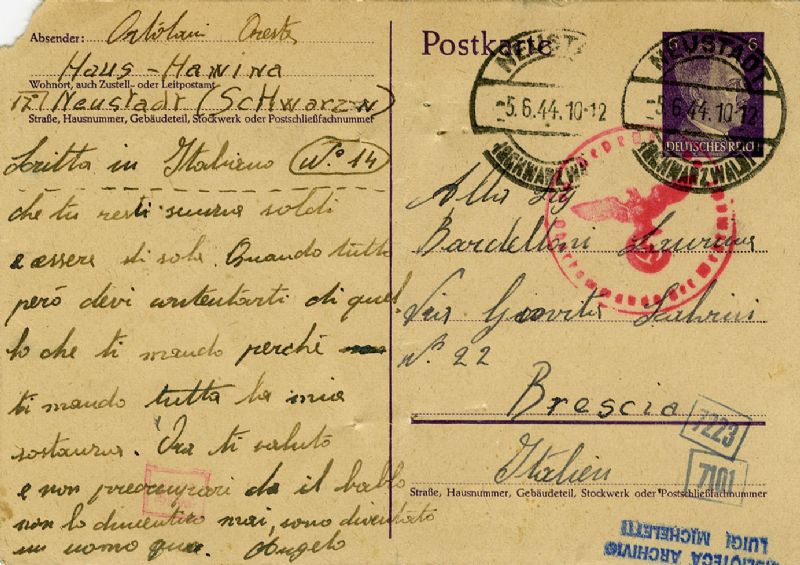 Absender: Ortolani Oreste
Haus-Hanina
Wohnort, auch Zustell- oder Leitpostamt
Neustadt (Schwarzw)
Straße, Hausnummer, Gebäudeteil, Stockwerk oder Postschließfachnummer
Scritta in Italiano N° 14
che tu resti senza soldi
e essere di sola. Quando tutto
però devi contentarti di quel
lo che ti mando perchè
ti mando tutta la mia
sostanza. Ora ti saluto
e non preocupari da il ballo
non lo dimentico mai, sono diventato
un uomo qua. Angelo
Postkarte
NEUSTADT
-5.6.44.10-12
(SCHWARZWALD)
NEUSTADT
-5.6.44.10-12
(SCHWARZWALD)
6 6
DEUTSCHES REICH
Oberkommando der Wehrmacht
Alla Sig
Bardelloni
Via
N° 22
Brescia
Italien
7223
7101
Straße, Hausnummer, Gebäudeteil, Stockwerk oder Postschließfachnummer
BIBLIOTECA ARCHIVIO
LUIGI MICHELETTI